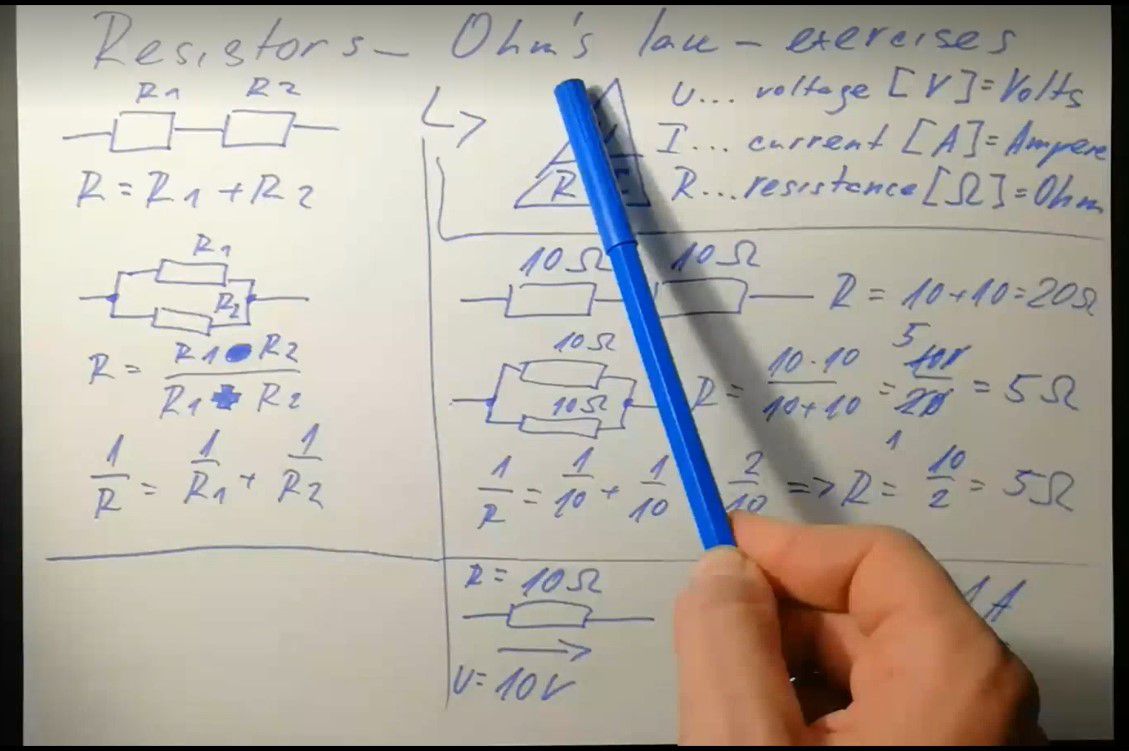 Resistors - Ohm's law - exercises
R1 R2
R = R1 + R2
R1
R2
R = R1 • R2 / R1 + R2
1/R = 1/R1 + 1/R2
U
R I
U... voltage [V] = Volts
I... current [A] = Ampere
R... resistance [Ω] = Ohm
10Ω 10Ω
R = 10+10=20Ω
10Ω
10Ω
R = 10·10 / 10+10 = 5 / 1 = 5Ω
1/R = 1/10 + 1/10 2/10 => R = 10/2 = 5Ω
R = 10Ω
U = 10V
1A